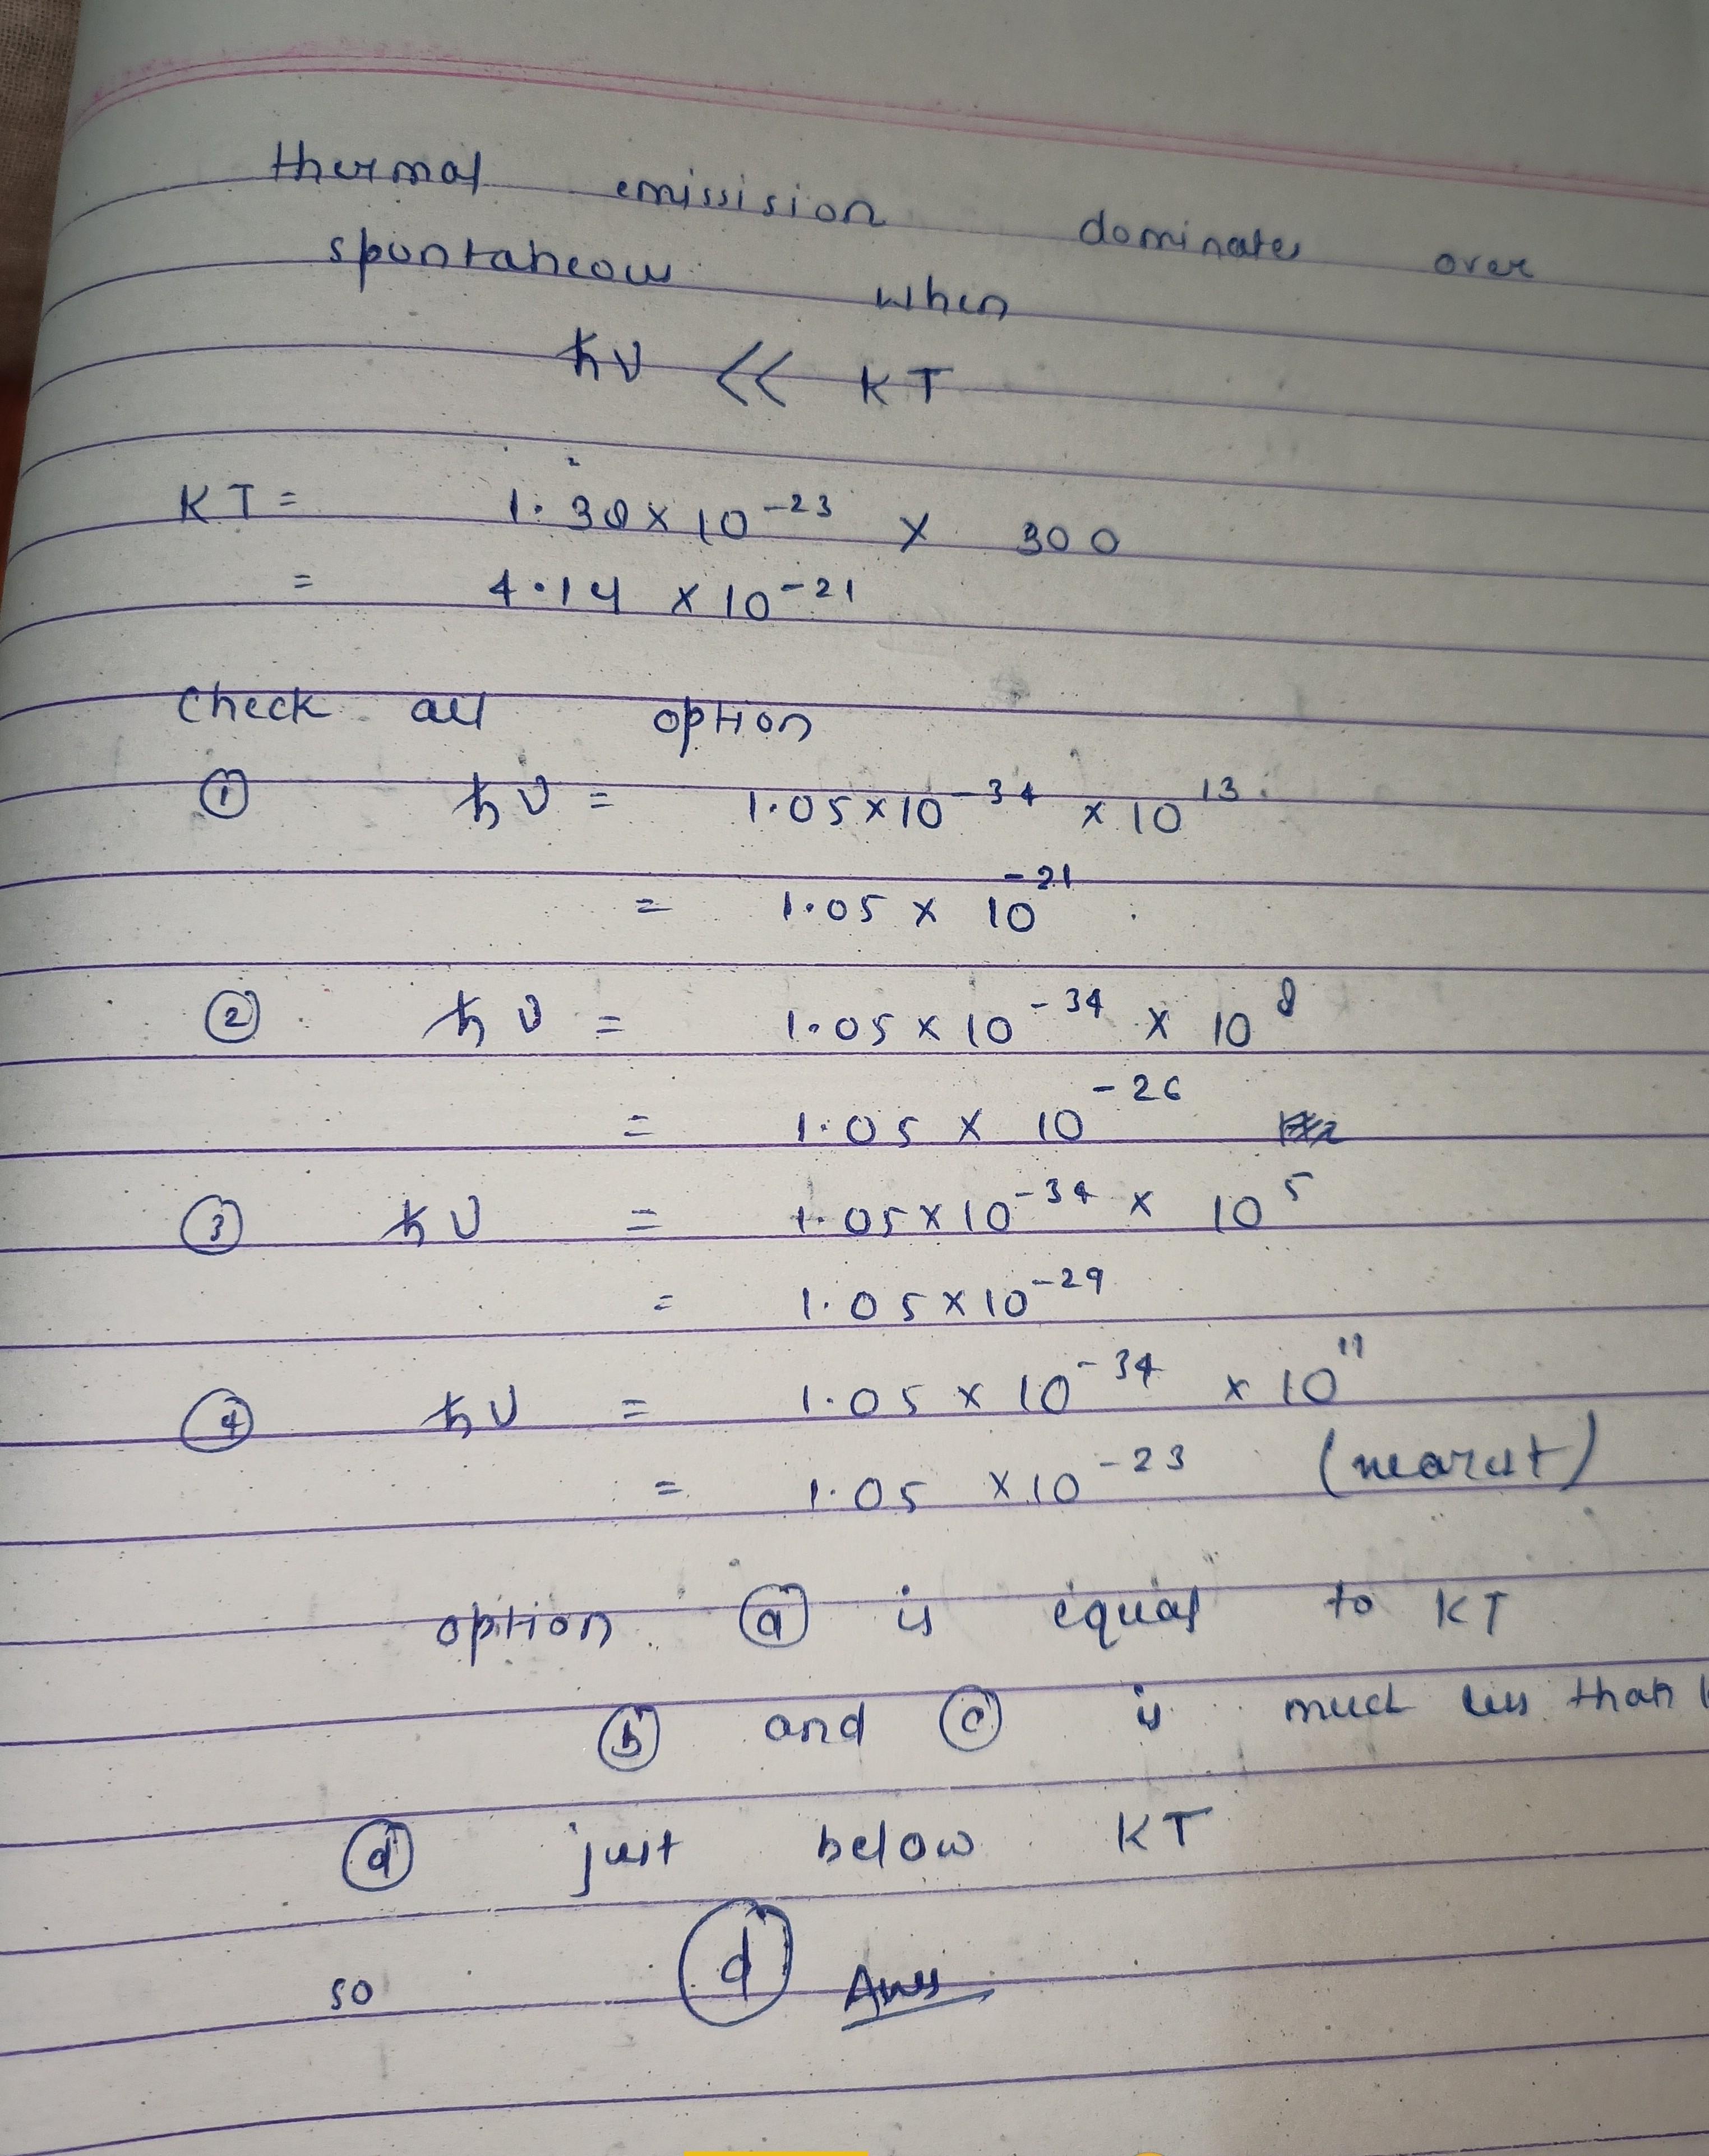 thermal emissision dominates over
spontaneous when
ħν << KT
KT = 1.38 × 10⁻²³ × 300
= 4.14 × 10⁻²¹
Check all option
① ħν = 1.05×10⁻³⁴ × 10¹³
= 1.05 × 10⁻²¹
② ħν = 1.05×10⁻³⁴ × 10⁸
= 1.05 × 10⁻²⁶
③ ħν = 1.05×10⁻³⁴ × 10⁵
= 1.05×10⁻²⁹
④ ħν = 1.05 × 10⁻³⁴ × 10¹¹
= 1.05 ×10⁻²³ (nearest)
option ⓐ is equal to KT
ⓑ and ⓒ is much less than
ⓓ just below KT
so ⓓ Ans